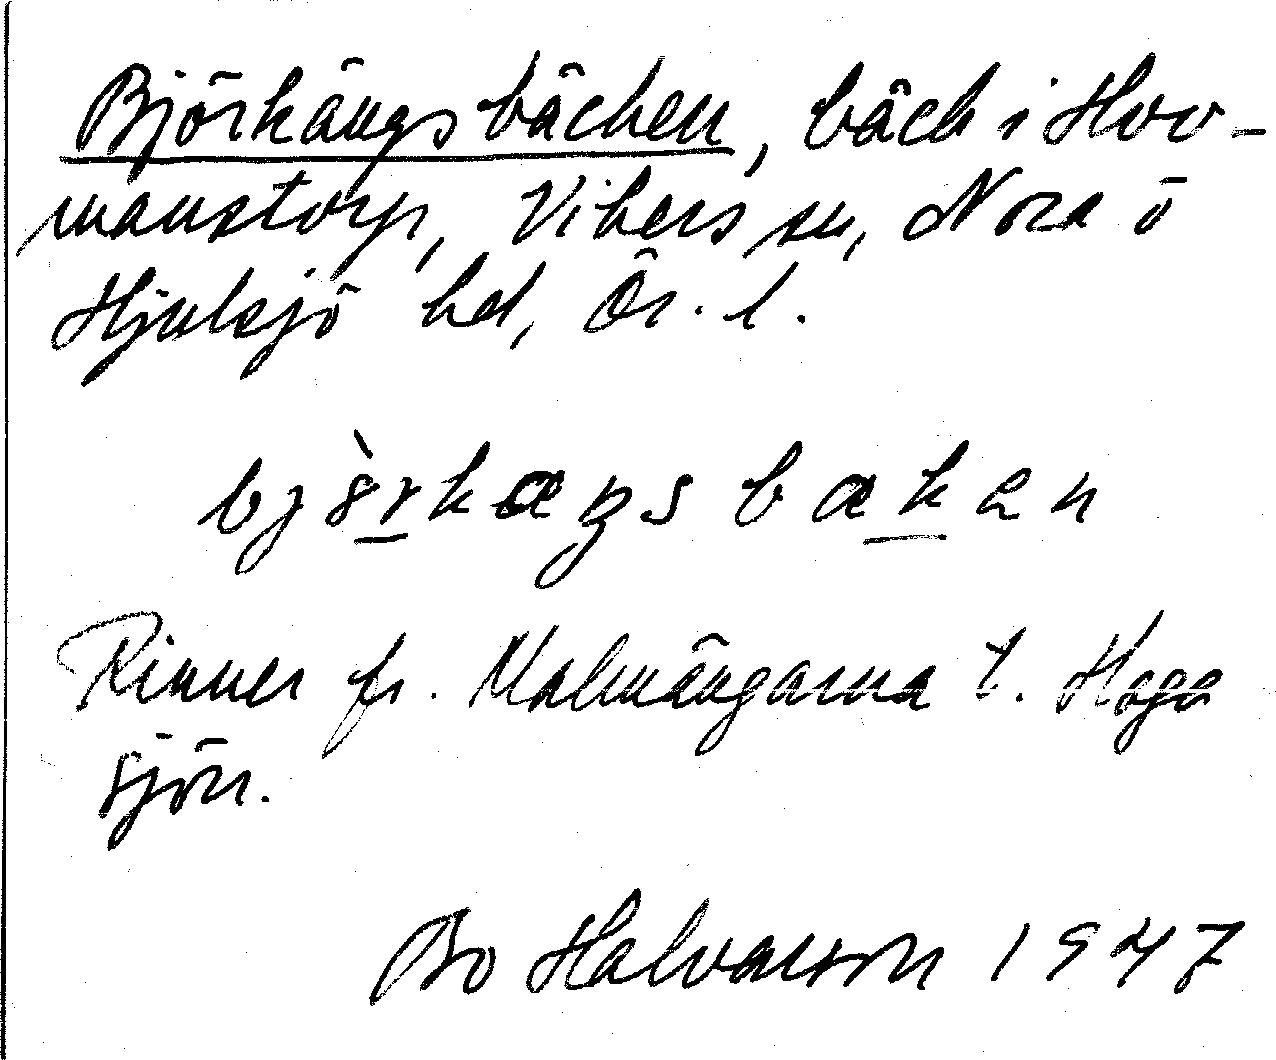 Björkängsbäcken, bäck i Hov-
manstorp, Vikers sn, Nora o
Hjulsjö hd, Ör. l.
bjò̈rkæŋsbækən
Rinner fr. Malmängarna t. Haga
sjön.
Bo Halvarson 1947